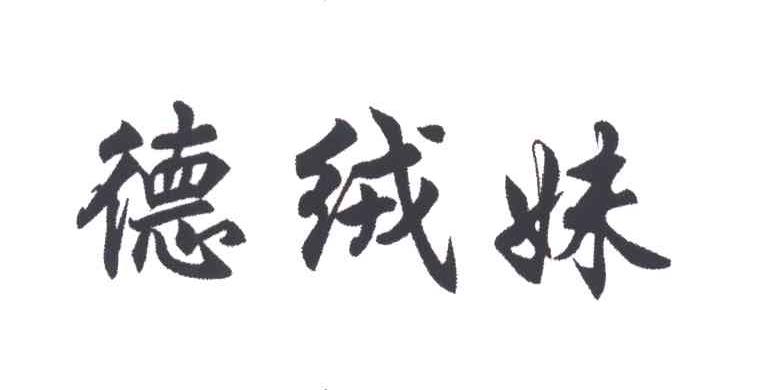 德绒妹